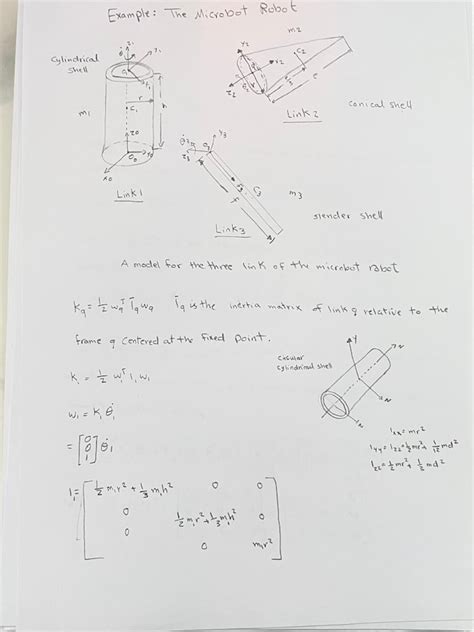 Example: The Microbot Robot
Cylindrical
shell
m1
h
C1
z0
O0
x0
Link 1
m2
Y2
x2
z2
C2
Link 2
conical shell
Y3
z3
C3
m3
Link3
slender shell
A model for the three link of the microbot robot
Kq = 1/2 wqᵀ Īq wq Īq is the inertia matrix of link q relative to the
frame q centered at the fixed point.
K1 = 1/2 w1ᵀ I1 w1
w1 = K1 θ̇1
= [0 0 1] θ̇1
cylindrical shell
Y
Ixx = mr²
Iyy = Izz = 1/2 mr² + 1/12 md²
Izz = 1/2 mr² + 1/3 md²
I1 = [ 1/2 m1r² + 1/3 m1h² 0 0
0 1/2 m1r² + 1/3 m1h² 0
0 0 m1r² ]